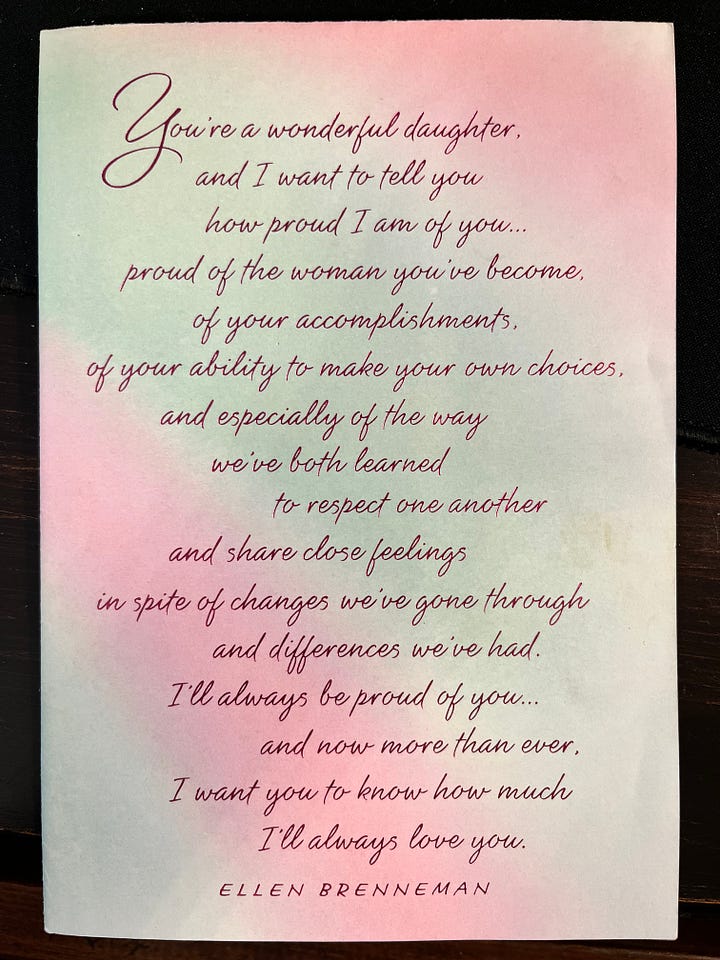 You're a wonderful daughter,
and I want to tell you
how proud I am of you...
proud of the woman you've become,
of your accomplishments,
of your ability to make your own choices,
and especially of the way
we've both learned
to respect one another
and share close feelings
in spite of changes we've gone through
and differences we've had.
I'll always be proud of you...
and now more than ever,
I want you to know how much
I'll always love you.
ELLEN BRENNEMAN